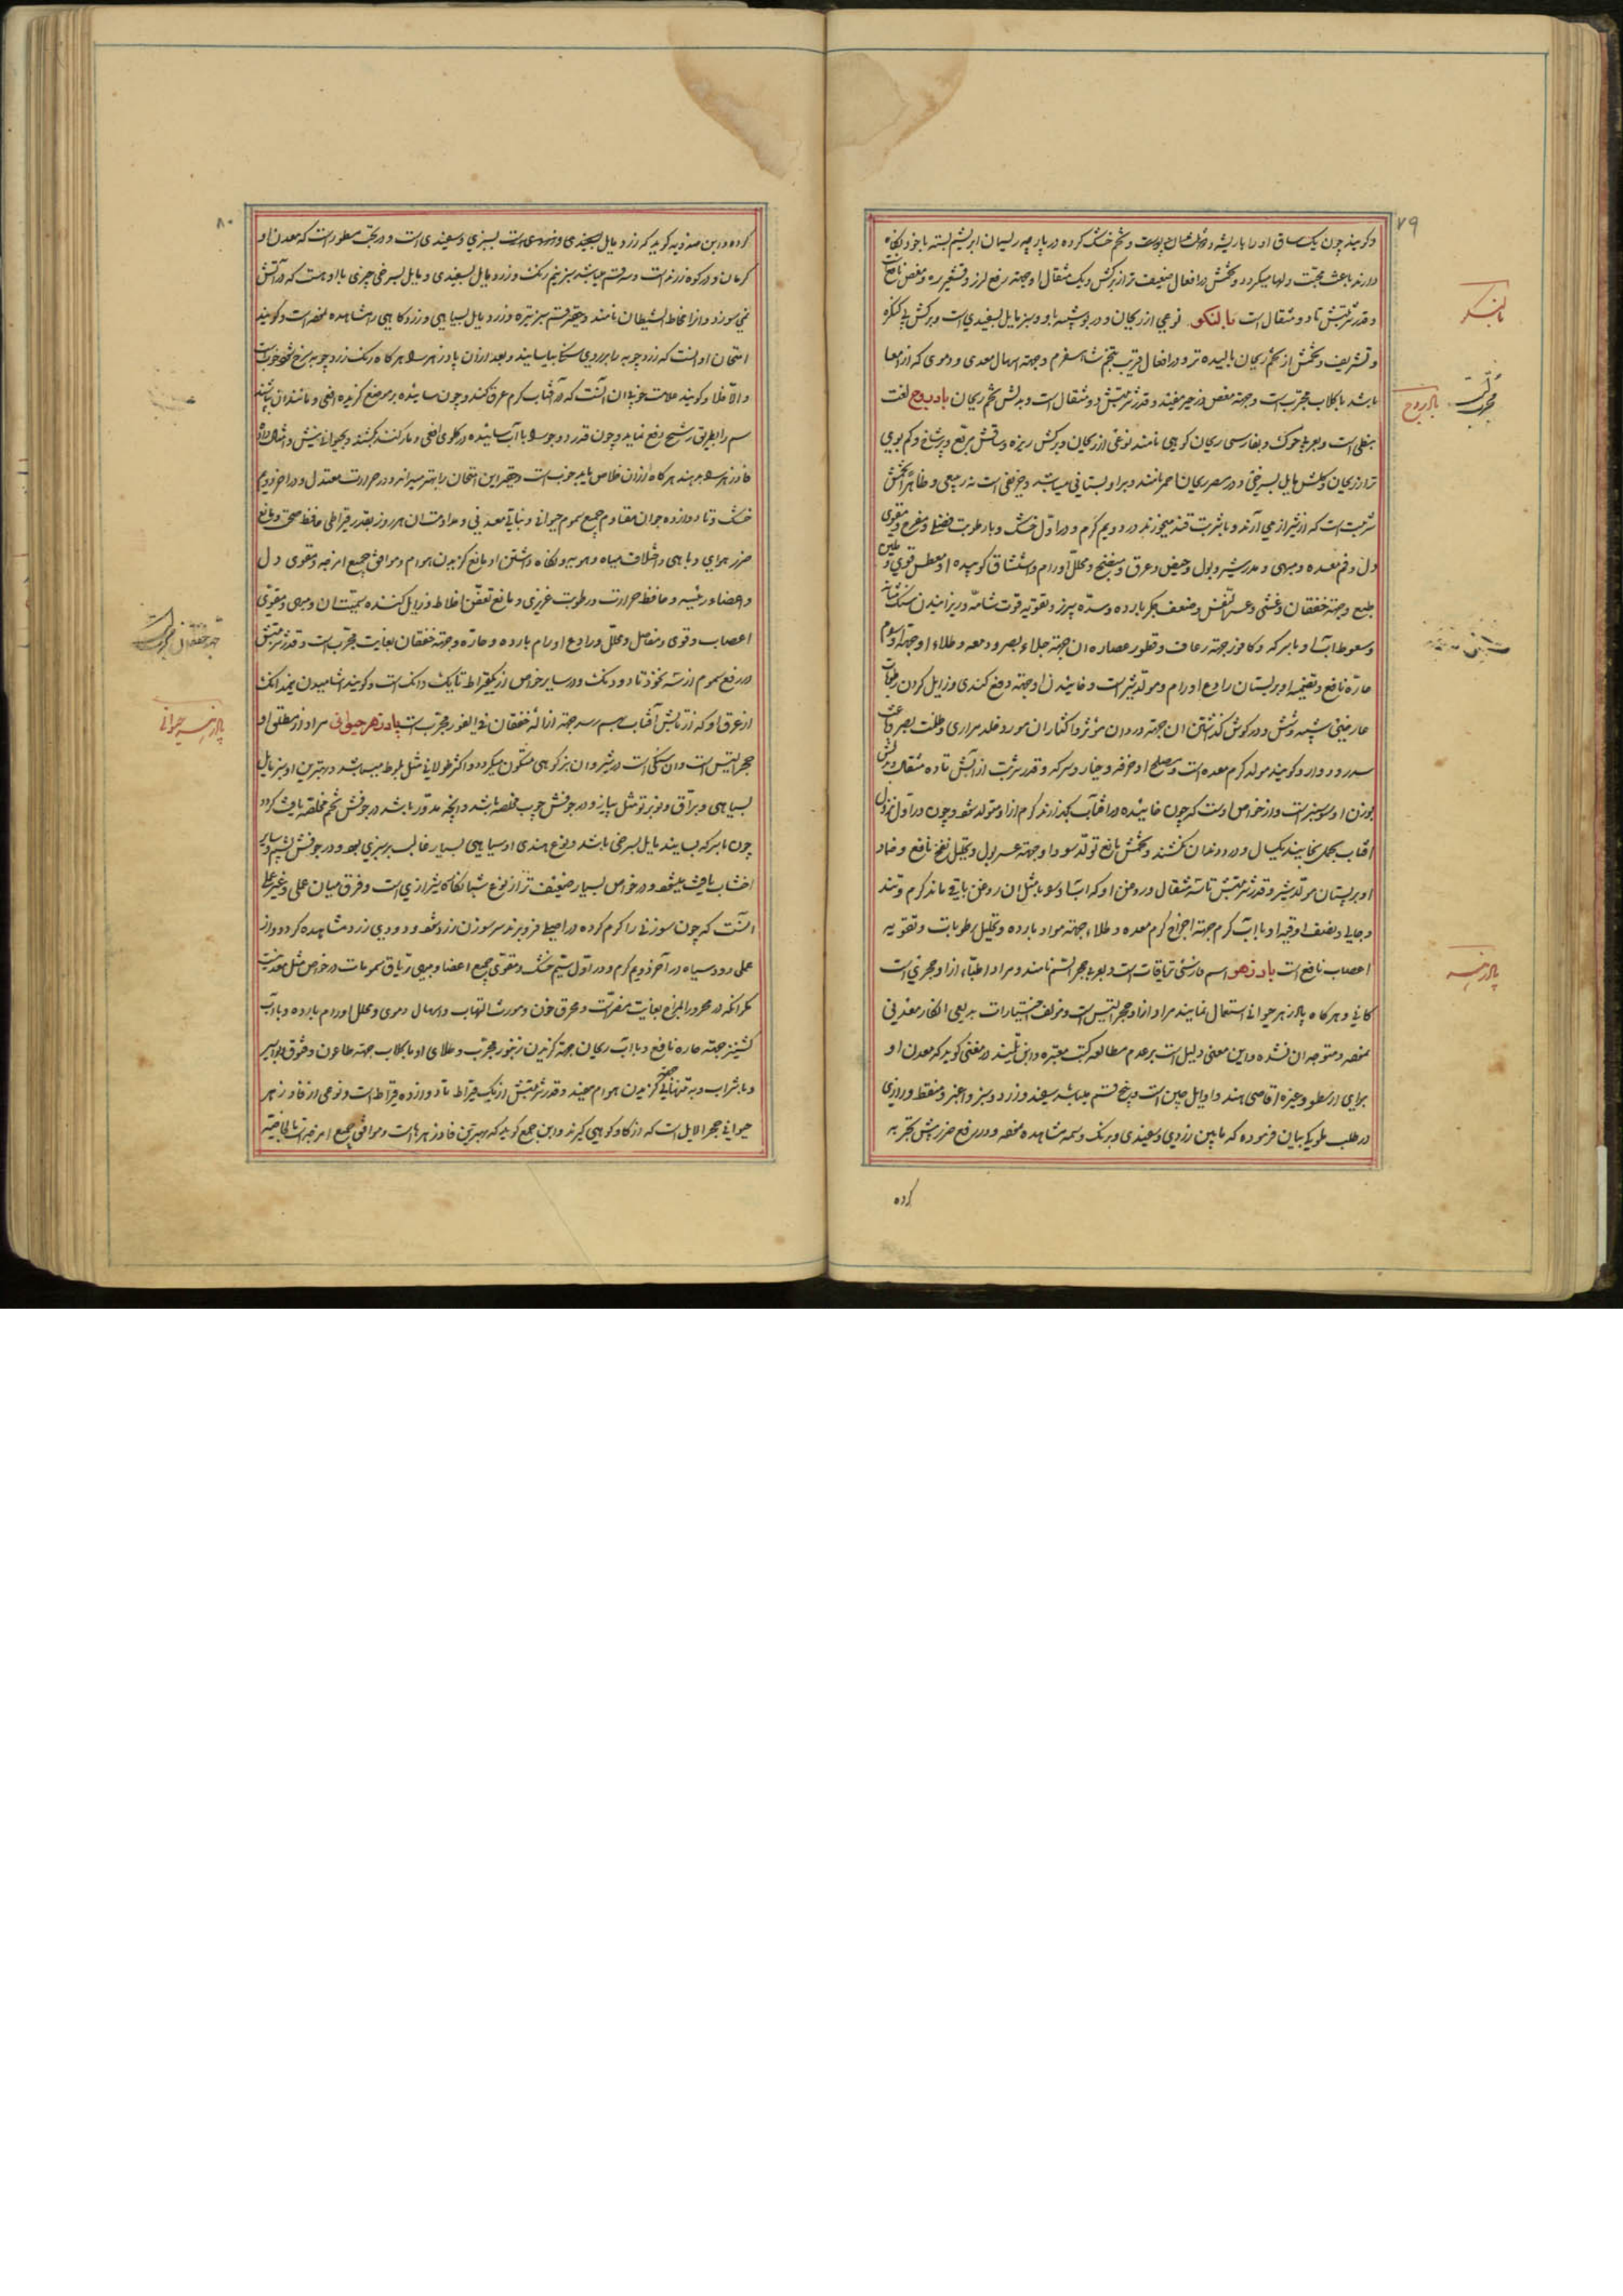 ۷۹
وکویند چون یک ساق او را با ریشه و تخم خشک کرده در پارچه ریسمان ابریشم بسته با خود نکاه
دارند باعث محبت دلها میکردد و تخمش در افعال ضعیف تر از برکش و یک مثقال او جهته رفع لرز و قشعریره و مغص نافع است
و قدر شربتش تا دو مثقال است بالنکو نوعی از ریحان و در بو شبیه باو و سبز مایل بسفیدی است و برکش بی کنکره
و تشریف و تخمش از تخم ریحان بالیده تر و در افعال قریب بتخم شاهسفرم و جهته اسهال معدی و دموی که از امعا
باشد با کلاب مجرب است و جهته مغص و زحیر مفید و قدر شربتش دو مثقال است و بدلش تخم ریحان بادروج لغت
نبطی است و بعربی حوک و بفارسی ریحان کوهی نامند نوعی از ریحان و برکش ریزه و ساقش مربع و پرشاخ و کم بوی
تر از ریحان و کلش مایل بسرخی و در مصر ریحان احمر نامند و بری و بستانی میباشد و خریفی است نه ربیعی و ظاهرا تخمش
شربت است که از شیراز می آرند و با شربت قند میخورند در دویم کرم و در اول خشک و با رطوبت فضلی و مفرح و مقوی
دل و فم معده و مبهی و مدر شیر و بول و حیض و عرق و مفتح و محلل اورام و استنشاق کوبیده او معطس قوی و ملین
طبع و جهته خفقان و غشی و عسر التنفس و ضعف جکر بارده و سده سپرز و تقویه قوت شامه و ریزانیدن سنک مثانه
وسعوط آب او با سرکه و کافور جهته رعاف و قطور عصاره ان جهته جلاء بصر و دمعه و طلاء او جهته اورام
حاره نافع و تضمید او بر پستان رادع اورام و مولد شیر است و خائیدن او جهته دفع کندی و زایل کردن رطوبات
عارضی و در کوش کذاشتن ان جهته درد ان موثر و اکثار ان مورد خلط مراری و ظلمت بصر و باعث
سدر و دوار و کویند مولد کرم معده است و مصلح او خرفه و خیار و سرکه و قدر شربت از آبش تا ده مثقال و بدلش
بوزن او سوسنبر است و از خواص اوست که چون خائیده در افتاب بگذارند کرم ازو متولد شود و چون در اول نزول
افتاب بحمل بخایند یکسال درد دندان نکشند و تخمش مانع تولد سودا و جهته عسر بول و تحلیل نفخ نافع و ضماد
او بر پستان مولد شیر و قدر شربتش تا سه مثقال و روغن او که آب او با مثل ان روغن باقی ماند کرم و تند
و جالی و نصف اوقیه او با آب کرم جهته اخراج کرم معده و طلاء جهته مواد بارده و تحلیل رطوبات و تقویه
اعصاب نافع است بادزهر اسم فارسی تریاقات است و بعربی حجر السم نامند و مراد اطباء ازو حجری است
کانی و هرکاه پادزهر حیوانی استعمال نمایند مراد ازو حجر التیس است و مولف اختیارات بدیعی انکار معدنی
نموده و متوجه ان نشده و این معنی دلیل است بر عدم مطالعه کتب معتبره و ابن تلمیذ در مغنی کوید که معدن او
برای ارسطو و غیره اقاصی هند و اوایل چین است و پنج قسم میباشد سفید و زرد و سبز و اغبر و منقط و رازی
در طب ملوکی بیان فرموده که مابین زردی و سفیدی و برنک وسمه مشاهده نموده و در رفع ضرر بیش تجربه
کرده
بالنکو
مجرب است
بادروج
پادزهر
۸۰
کرده و ابن مندویه کوید که زرد مایل بسفیدی و زردی است بسبزی و سفیدی است و در نخب مسطور است که معدن او
کرمان و در کوه زرند است و سه قسم میباشد سبز نیم رنک و زرد مایل بسفیدی و مایل بسرخی چیزی با او هست که در آتش
نمی سوزد و انرا مخاط الشیطان نامند و حقیر قسم سبز تیره و زرد مایل بسیاهی و زرد کاهی را مشاهده نموده است و کویند
امتحان او انست که زردچوبه را بر روی سنک بسایند و بعد از ان پادزهر هرکاه رنک زردچوبه سرخ شود خوب است
والا فلا و کویند علامت خوب ان آنست که در آفتاب کرم عرق کند و چون سائیده بر موضع کزیده افعی و مانند ان بپاشند
سم را بطریق رشح دفع نماید و چون قدر دو جو او با آب سائیده در کلوی افعی و مار کنند بکشد و بحیوانی بیش و امثال داده
فادزهر بدهند هرکاه از ان خلاص یابد خوب است و حقیر این امتحان را بهتر میداند و در حرارت معتدل و در اخر دویم
خشک و تا دوازده جو ان مقاوم جمیع سموم حیوانی و نباتی و معدنی و مداومت ان هر روز بقدر قیراطی حافظ صحت و مانع
ضرر هوای وبائی و اختلاف میاه و اهویه و نکاه داشتن او مانع کزیدن هوام و موافق جمیع امزجه و مقوی دل
و اعضاء رئیسه و حافظ حرارت و رطوبت غریزی و مانع تعفن اخلاط و زایل کننده سمیت ان و مبهی و مقوی
اعصاب و قوی و مفاصل و محلل و رادع اورام بارده و حاره و جهته خفقان بغایت مجرب است و قدر شربتش
در رفع سموم از سه نخود تا دو دنک و در سایر خواص از یکقیراط تا یک دانک است و کویند اشامیدن نیمدانک
از عرق او که از تابش آفتاب بهم رسد جهته ازاله خفقان فی الفور مجرب است پادزهر حیوانی مراد از مطلق او
حجر التیس است و ان سنکی است در شیردان بز کوهی متکون میکردد و اکثر طولانی مثل بلوط میباشد و بهترین او سبز مایل
بسیاهی و براق و تو بر تو مثل پیاز و در جوفش چوب مخلصه باشد و انچه مدور باشد در جوفش تخم مخلصه یافت کردد
چون با سرکه بسایند مایل بسرخی باشد و نوع هندی او سیاهی بسیار غالب بر سبزی بود و در جوفش پشم و سایر
اخشاب یافت میشود و در خواص بسیار ضعیف تر از نوع شبانکاره شیرازی است و فرق میان عملی و غیر عملی
انست که چون سوزنی را کرم کرده در اصیل فرو برند سر سوزن زرد شود و دودی زرد مشاهده کردد و از
عملی دود سیاه در آخر دویم کرم و در اول سیم خشک و مقوی جمیع اعضا و مبهی و تریاق سمومات در خواص مثل معدنیست
مکر انکه در محرور المزاج بغایت مضر است و محرق خون و مورث التهاب و اسهال دموی و محلل اورام بارده و با آب
کشنیز جهته حاره نافع و با آب ریحان جهته کزیدن زنبور مجرب و طلای او با کلاب جهته طاعون و شقوق بواسیر
و با شراب و به تنهائی جهته کزیدن هوام مفید و قدر شربتش از یک قیراط تا دوازده قیراط است و نوعی از فادزهر
حیوانی حجر الایل است که از کاو کوهی کیرند و ابن جمیع کوید که بهترین فادزهرها است و موافق جمیع امزجه است بالخاصیه
جهته خفقان مجرب است
پادزهر حیوانی